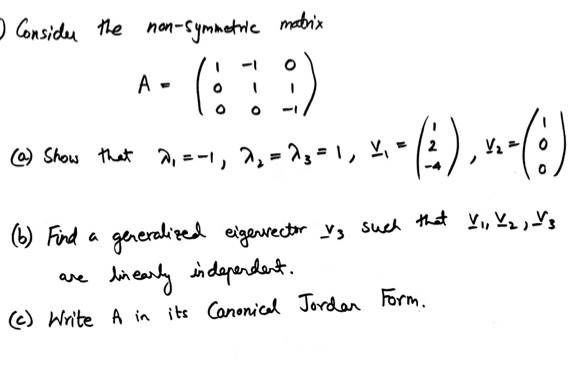 ) Consider the non-symmetric matrix
A = ( 1 -1 0
0 1 1
0 0 -1 )
(a) Show that λ₁ = -1, λ₂ = λ₃ = 1, v₁ = ( 1 2 -4 ), v₂ = ( 1 0 0 )
(b) Find a generalized eigenvector v₃ such that v₁, v₂, v₃
are linearly independent.
(c) Write A in its Canonical Jordan Form.